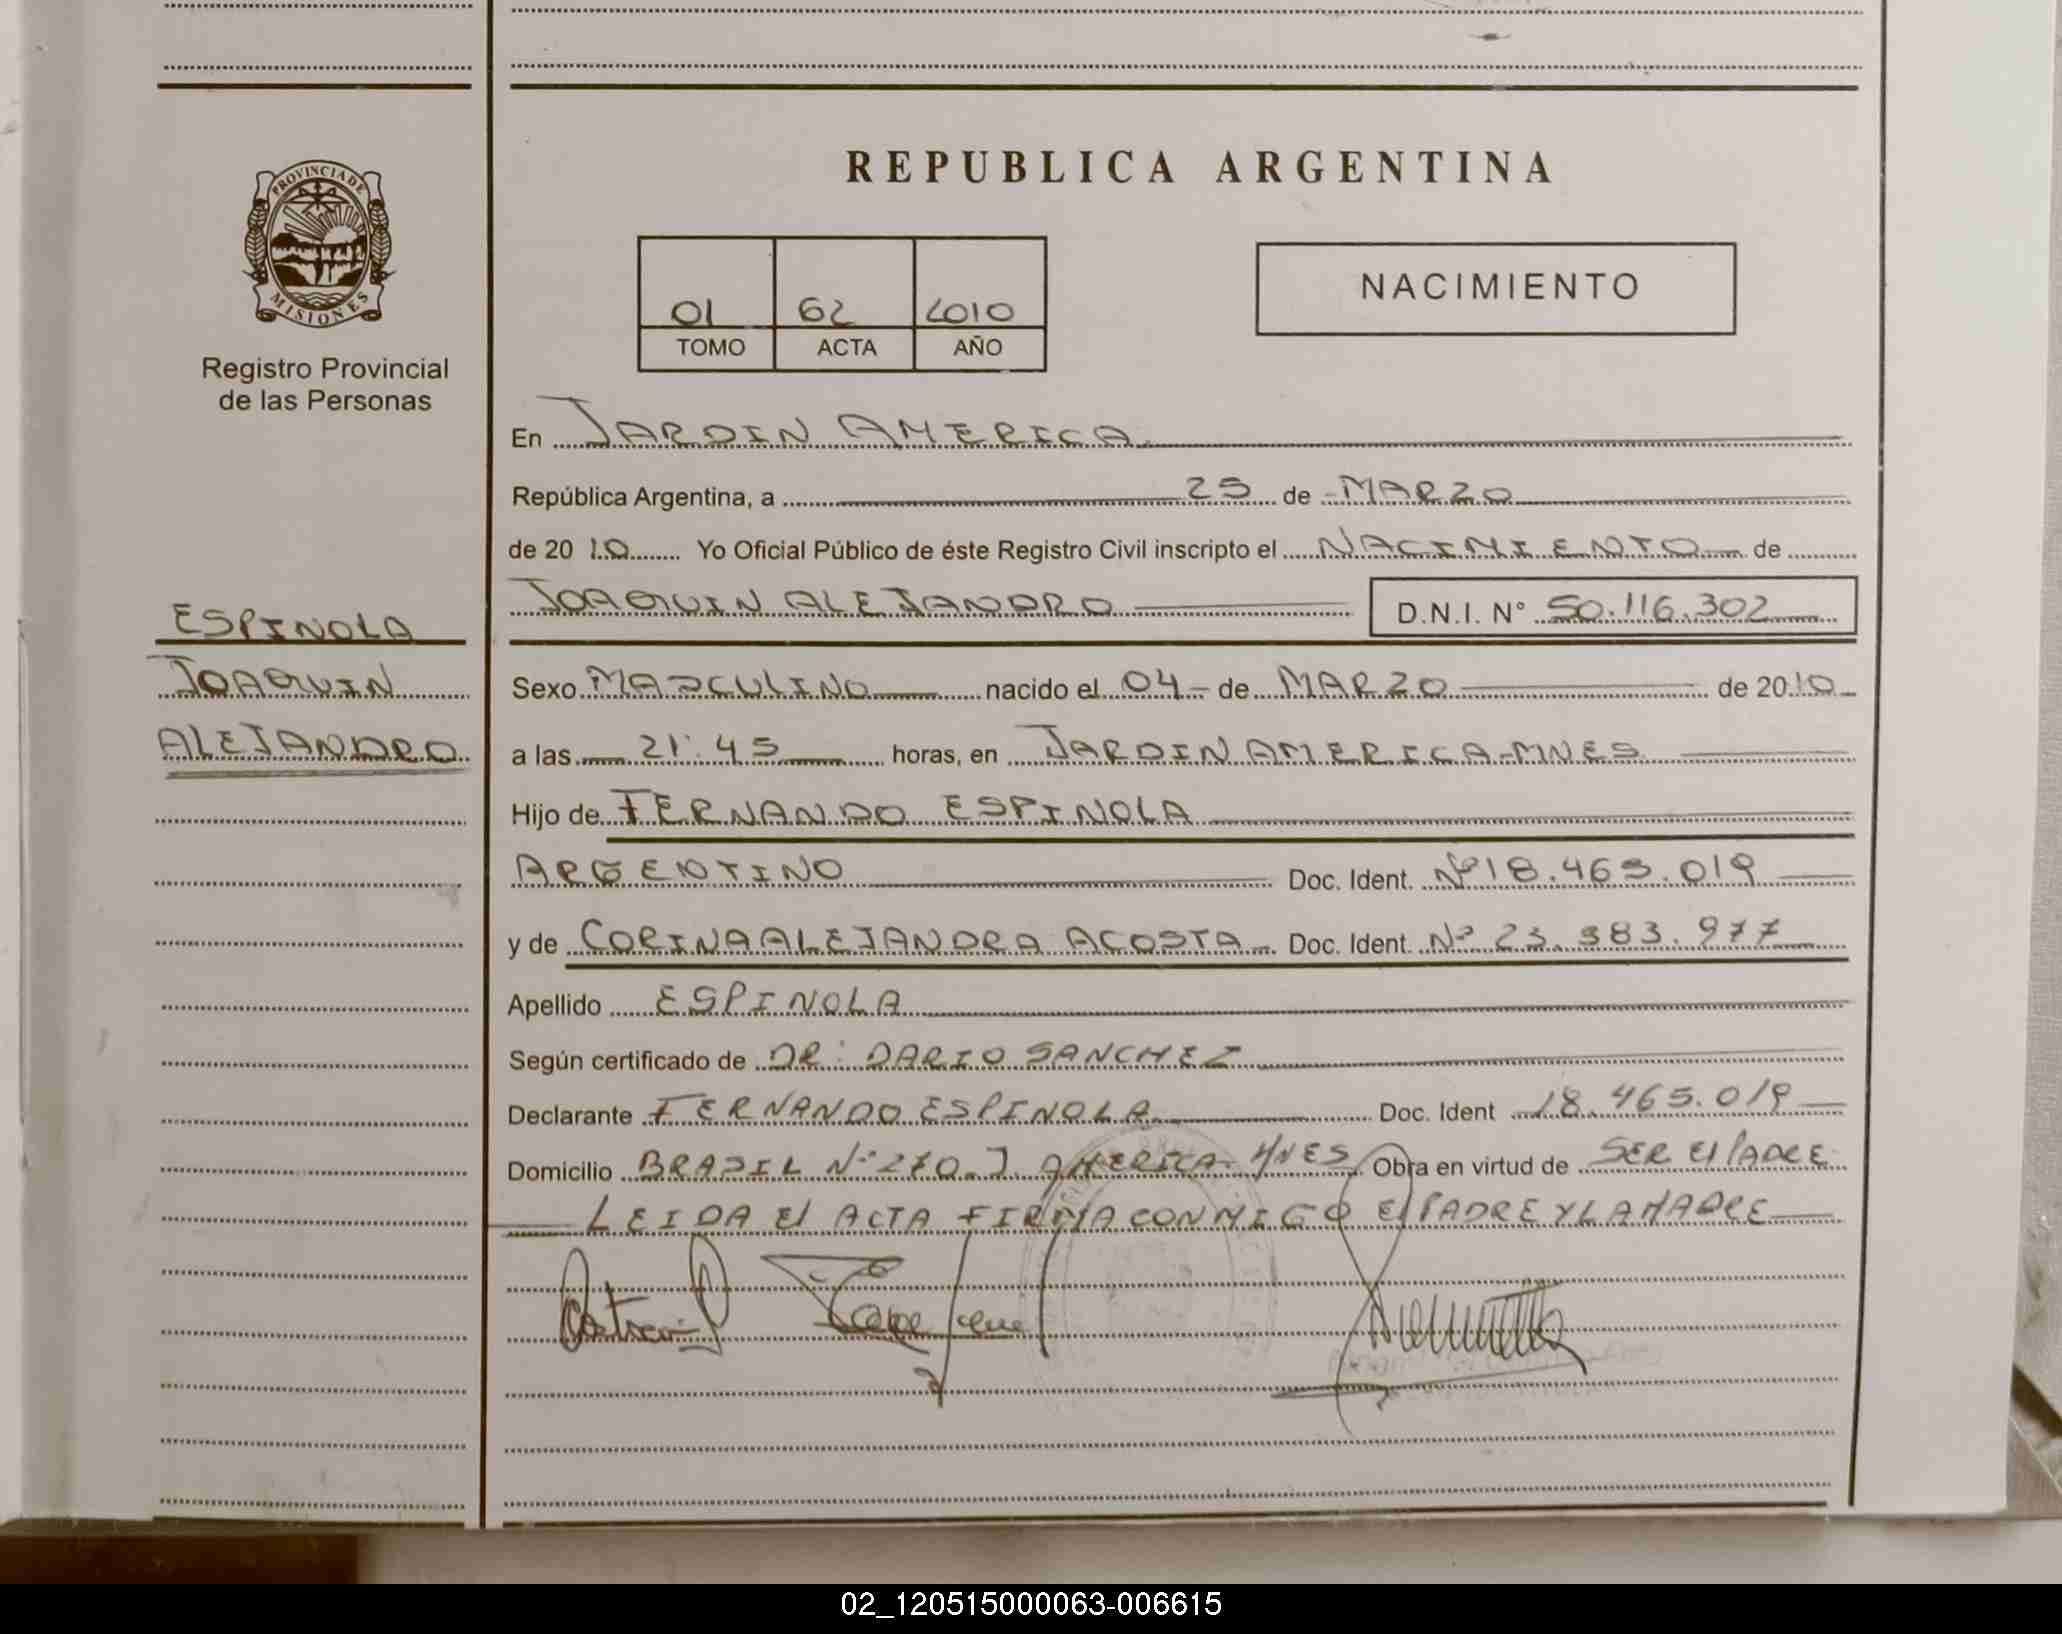 REPUBLICA ARGENTINA
PROVINCIA DE
MISIONES
Registro Provincial
de las Personas
01 62 2010
TOMO ACTA AÑO
NACIMIENTO
En JARDIN AMERICA
República Argentina, a 25 de MARZO
de 20 10 Yo Oficial Público de éste Registro Civil inscripto el NACIMIENTO de
JOAQUIN ALEJANDRO D.N.I. N° 50.116.302
ESPINOLA
JOAQUIN
ALEJANDRO
Sexo MASCULINO nacido el 04 de MARZO de 2010
a las 21:45 horas, en JARDIN AMERICA-MNES
Hijo de FERNANDO ESPINOLA
ARGENTINO Doc. Ident. Nº 18.465.019
y de CORINA ALEJANDRA ACOSTA Doc. Ident. Nº 23.383.977
Apellido ESPINOLA
Según certificado de DR: DARIO SANCHEZ
Declarante FERNANDO ESPINOLA Doc. Ident 18.465.019
Domicilio BRASIL Nº 270. J. AMERICA- MNES Obra en virtud de SER El PADRE
LEIDA El ACTA FIRMA CONMIGO El PADRE Y LA MADRE
02_120515000063-006615